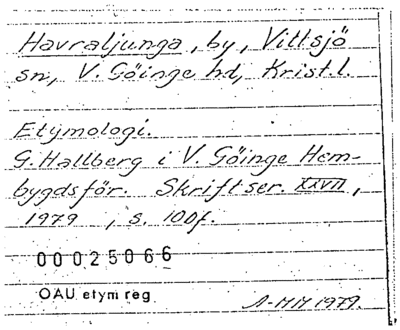 Havraljunga, by, Vittsjö
sn, V. Göinge hd, Krist.l.
Etymologi.
G. Hallberg i V. Göinge Hem-
bygdsför. Skriftser. XXVII,
1979, s. 100f.
00025066
OAU etym reg
A-MM 1979.